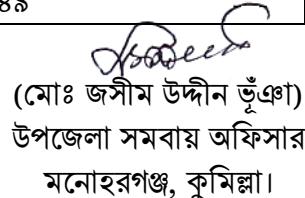 ৪৯
(মোঃ জসীম উদ্দীন ভূঁঞা)
উপজেলা সমবায় অফিসার
মনোহরগঞ্জ, কুমিল্লা।